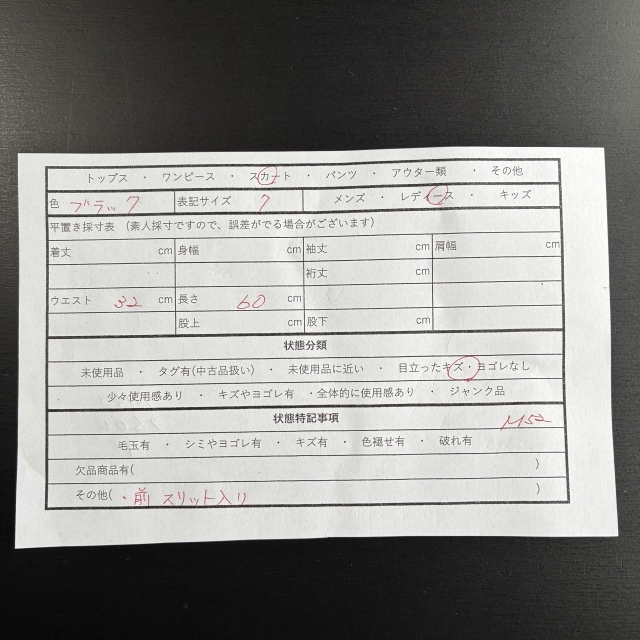 トップス ・ ワンピース ・ スカート ・ パンツ ・ アウター類 ・ その他
色 ブラック 表記サイズ 7 メンズ ・ レディース ・ キッズ
平置き採寸表 (素人採寸ですので、誤差がでる場合がございます)
着丈 cm 身幅 cm 袖丈 cm 肩幅 cm
裄丈 cm
ウエスト 32 cm 長さ 60 cm
股上 cm 股下 cm
状態分類
未使用品 ・ タグ有(中古品扱い) ・ 未使用品に近い ・ 目立ったキズ・ヨゴレなし
少々使用感あり ・ キズやヨゴレ有 ・全体的に使用感あり ・ ジャンク品
状態特記事項 M52
毛玉有 ・ シミやヨゴレ有 ・ キズ有 ・ 色褪せ有 ・ 破れ有
欠品商品有( )
その他( ・前 スリット入り )